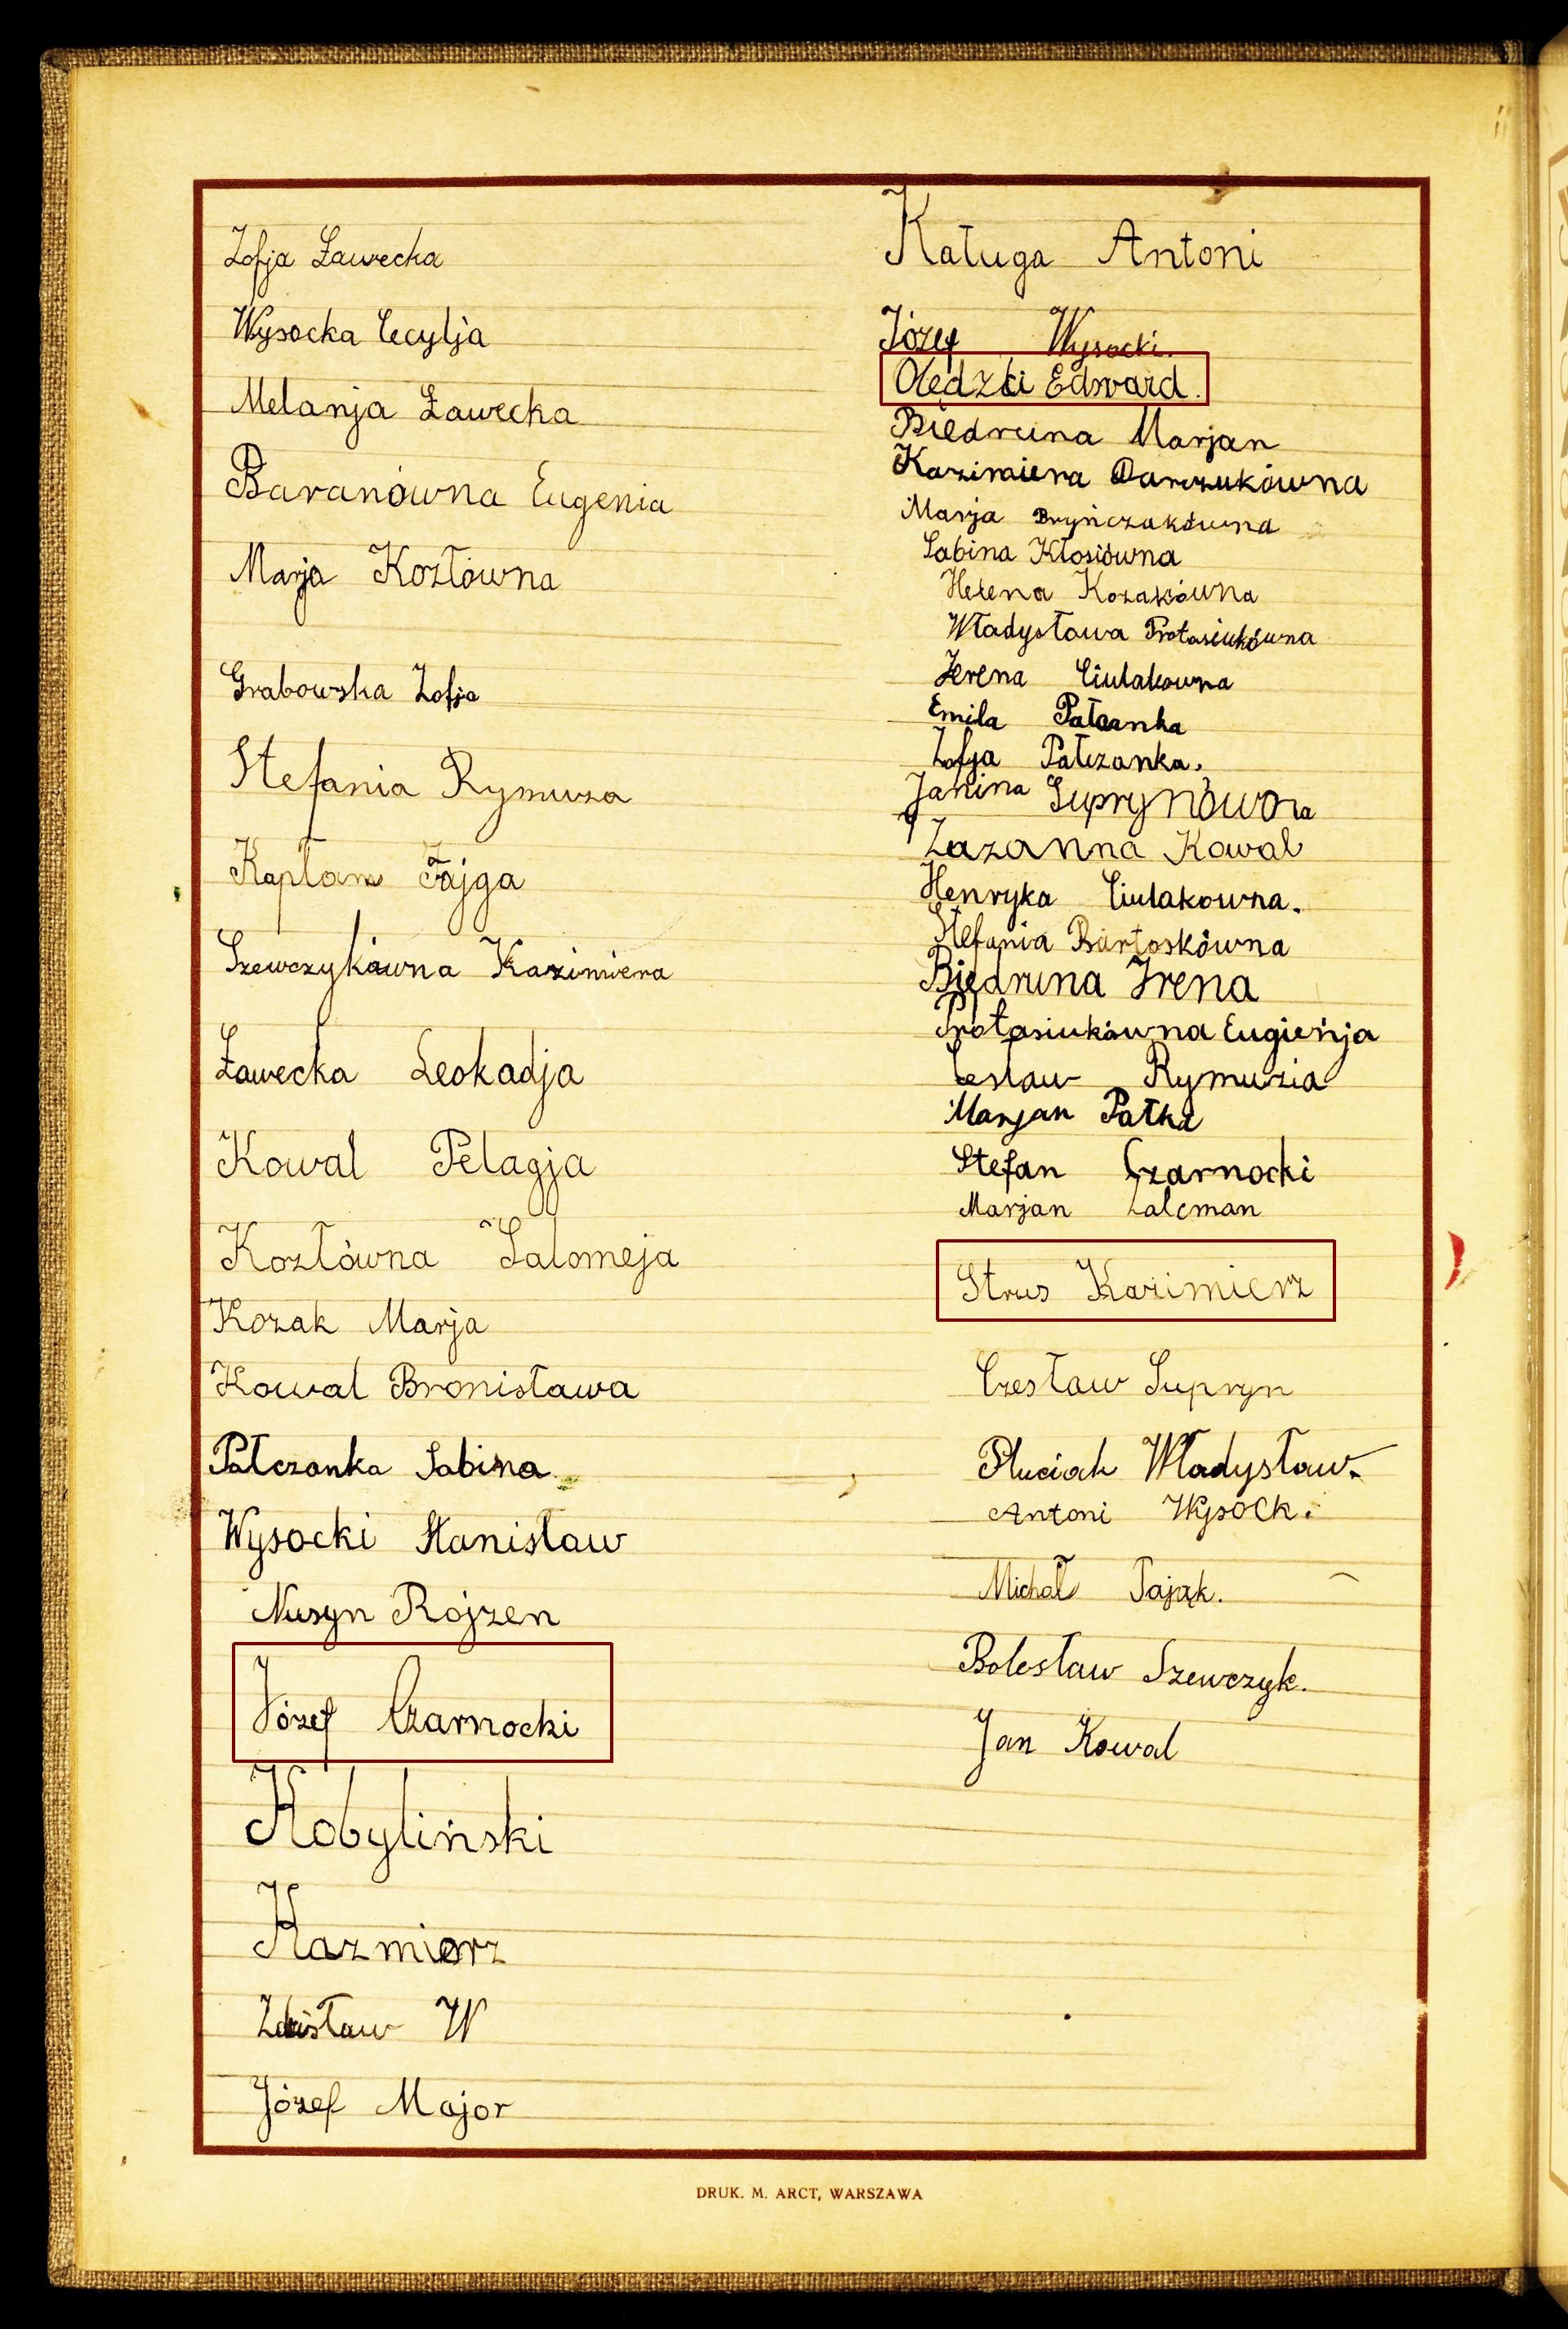 Zofja Ławecka
Wysocka Cecylja
Melanja Ławecka
Baranówna Eugenia
Marja Kozłówna
Grabowska Zofja
Stefania Rymuza
Kapłan Fajga
Szewczykówna Kazimiera
Ławecka Leokadja
Kowal Pelagja
Kozłówna Salomeja
Kozak Marja
Kowal Bronisława
Pałczanka Sabina
Wysocki Stanisław
Nusyn Rojzen
Józef Czarnocki
Kobyliński
Kazmierz
Zdzisław W
Józef Major
Kaługa Antoni
Józef Wysocki.
Olędzki Edward.
Biedruna Marjan
Kazimiera Darczukówna
Marja Bryńczakówna
Sabina Kłosiówna
Helena Kozakówna
Władysława Protasiukówna
Jrena Ciulakowna
Emila Pałczanka
Zofja Pałczanka.
Janina Suprynówna
Zuzanna Kowal
Henryka Ciulakowna.
Stefania Bartoskówna
Biedruna Jrena
Protasiukówna Eugienja
Cesław Rymuzia
Marjan Pałka
Stefan Czarnocki
Marjan Zalcman
Strus Kazimierz
Czesław Supryn
Pluciak Władysław.
Antoni Wysock.
Michał Pająk.
Bolesław Szewczyk.
Jan Kowal
DRUK. M. ARCT, WARSZAWA